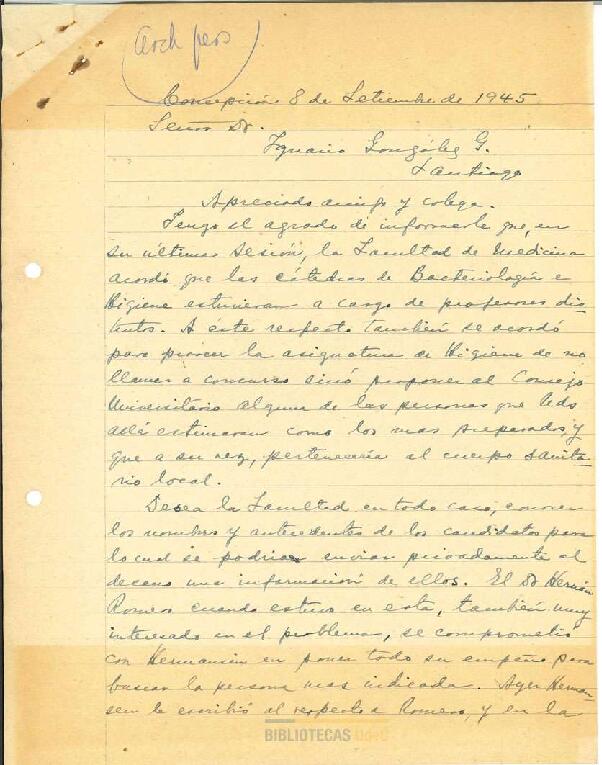 Arch pers
Concepción 8 de Setiembre de 1945
Señor Dr.
Ignacio González G.
Santiago
Apreciado amigo y colega.
Tengo el agrado de informarle que, en
su última sesión, la Facultad de Medicina
acordó que las cátedras de Bacteriología e
Higiene estuvieran a cargo de profesores dis-
tintos. A este respecto también se acordó
para proveer la asignatura de Higiene de no
llamar a concurso sinó proponer al Consejo
Universitario alguna de las personas que Uds
allá estimaran como los mas preparados y
que a su vez, pertenecería al cuerpo sanita-
rio local.
Desea la Facultad en todo caso, conocer
los nombres y antecedentes de los candidatos para
lo cual se podrian enviar privadamente al
decano una información de ellos. El Dr Hernán
Romero cuando estuvo en esta, también muy
interesado en el problema, se comprometió
con Hermansen en poner todo su empeño para
buscar la persona mas indicada. Ayer Herman-
sen le escribió al respecto a Romero, y en la
BIBLIOTECAS UdeC